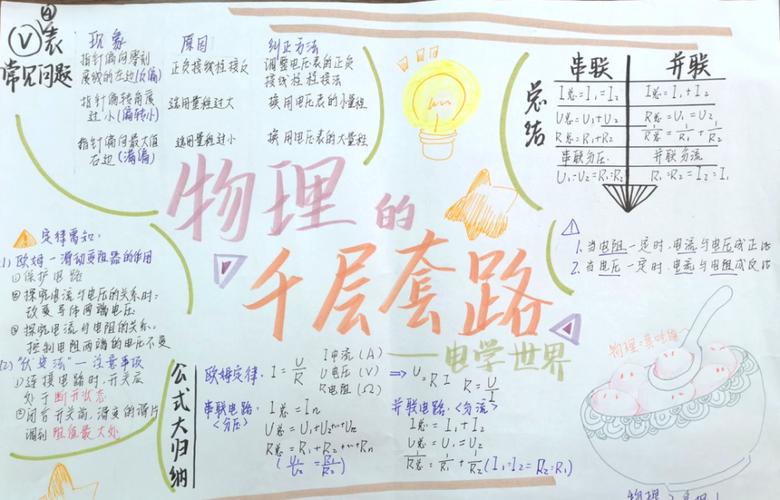 Ⓥ表
常见问题
现象 原因 纠正方法
指针偏向零刻度线的左边(反偏) 正负接线柱接反 调整电压表的正负接线柱接法
指针偏转角度过小(偏转小) 选用量程过大 换用电压表的小量程
指针偏向最大值右边(满偏) 选用量程过小 换用电压表的大量程
总结
串联 并联
I总=I₁=I₂ I总=I₁+I₂
U总=U₁+U₂ U总=U₁=U₂
R总=R₁+R₂ 1/R总=1/R₁+1/R₂
串联分压 并联分流
U₁:U₂=R₁:R₂ R₁:R₂=I₂:I₁
物理的
千层套路
——电学世界
1. 当电阻一定时,电流与电压成正比
2. 当电压一定时,电流与电阻成反比
定律需知:
(1) 欧姆—滑动变阻器的作用
①保护电路
②探究电流与电压的关系时:
改变导体两端电压
③探究电流与电阻的关系:
控制电阻两端的电压不变
(2)"伏安法"—注意事项
①连接电路时,开关应
处于断开状态
②闭合开关前,滑变的滑片
调到阻值最大处
公式大归纳
欧姆定律: I=U/R
I电流(A)
U电压(V)
R电阻(Ω)
=> U=RI R=U/I
串联电路:<分压>
I总=In
U总=U₁+U₂+…+Un
R总=R₁+R₂+…+Rn
(U₁/U₂=R₁/R₂)
并联电路:<分流>
I总=I₁+I₂
U总=U₁=U₂
1/R总=1/R₁+1/R₂(I₁:I₂=R₂:R₁)